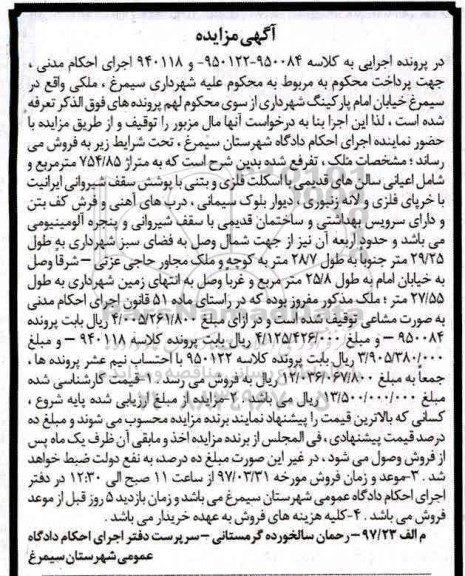 آگهی مزایده
در پرونده اجرایی به کلاسه ۹۵۰۰۸۴-۹۵۰۱۲۲- و ۹۴۰۱۱۸ اجرای احکام مدنی ،
جهت پرداخت محکوم به مربوط به محکوم علیه شهرداری سیمرغ ، ملکی واقع در
سیمرغ خیابان امام پارکینگ شهرداری از سوی محکوم لهم پرونده های فوق الذکر تعرفه
شده است ، لذا این اجرا بنا به درخواست آنها مال مزبور را توقیف و از طریق مزایده با
حضور نماینده اجرای احکام دادگاه شهرستان سیمرغ ، تحت شرایط زیر به فروش می
رساند ؛ مشخصات ملک ، تفرفع شده بدین شرح است که به متراژ ۷۵۴/۸۵ مترمربع و
شامل اعیانی سالن های قدیمی با اسکلت فلزی و بتنی با پوشش سقف شیروانی ایرانیت
با خرپای فلزی و لانه زنبوری ، دیوار بلوک سیمانی ، درب های آهنی و فرش کف بتن
و دارای سرویس بهداشتی و ساختمان قدیمی با سقف شیروانی و پنجره آلومینیومی
می باشد و حدود اربعه آن نیز از جهت شمال وصل به فضای سبز شهرداری به طول
۲۹/۲۵ متر جنوباً به طول ۲۸/۷ متر به کوچه و ملک مجاور حاجی عزتی – شرقا وصل
به خیابان امام به طول ۲۵/۸ متر مربع و غرباً وصل به انتهای زمین شهرداری به طول
۲۷/۵۵ متر ؛ ملک مذکور مفروز بوده که در راستای ماده ۵۱ قانون اجرای احکام مدنی
به صورت مشاعی توقیف شده است و در ازای مبلغ ۴/۰۰۵/۲۶۱/۸۰۰ ریال بابت پرونده
۹۵۰۰۸۴ – و مبلغ ۴/۱۲۵/۴۲۶/۰۰۰ ریال بابت پرونده کلاسه ۹۴۰۱۱۸ – و مبلغ
۳/۹۰۵/۳۸۰/۰۰۰ ریال بابت پرونده کلاسه ۹۵۰۱۲۲ با احتساب نیم عشر پرونده ها ،
جمعا به مبلغ ۱۲/۰۳۶/۰۶۷/۸۰۰ ریال به فروش می رسد . ۱-قیمت کارشناسی شده
مبلغ ۱۳/۵۰۰/۰۰۰/۰۰۰ریال می باشد . ۲-مزایده از مبلغ ارزیابی شده پایه شروع ،
کسانی که بالاترین قیمت را پیشنهاد نمایند برنده مزایده محسوب می شوند و مبلغ ده
درصد قیمت پیشنهادی ، فی المجلس از برنده مزایده اخذ و مابقی آن ظرف یک ماه پس
از فروش وصول می شود ، در غیر این صورت مبلغ ده درصد، به نفع دولت ضبط خواهد
شد . ۳-موعد و زمان فروش مورخه ۹۷/۰۳/۳۱ از ساعت ۱۱ صبح الی ۱۲:۳۰ در دفتر
اجرای احکام دادگاه عمومی شهرستان سیمرغ می باشد و زمان بازدید ۵ روز قبل از موعد
فروش می باشد . ۴-کلیه هزینه های فروش به عهده خریدار می باشد .
م الف ۹۷/۲۳ – رحمان سالخورده گرمستانی – سرپرست دفتر اجرای احکام دادگاه
عمومی شهرستان سیمرغ